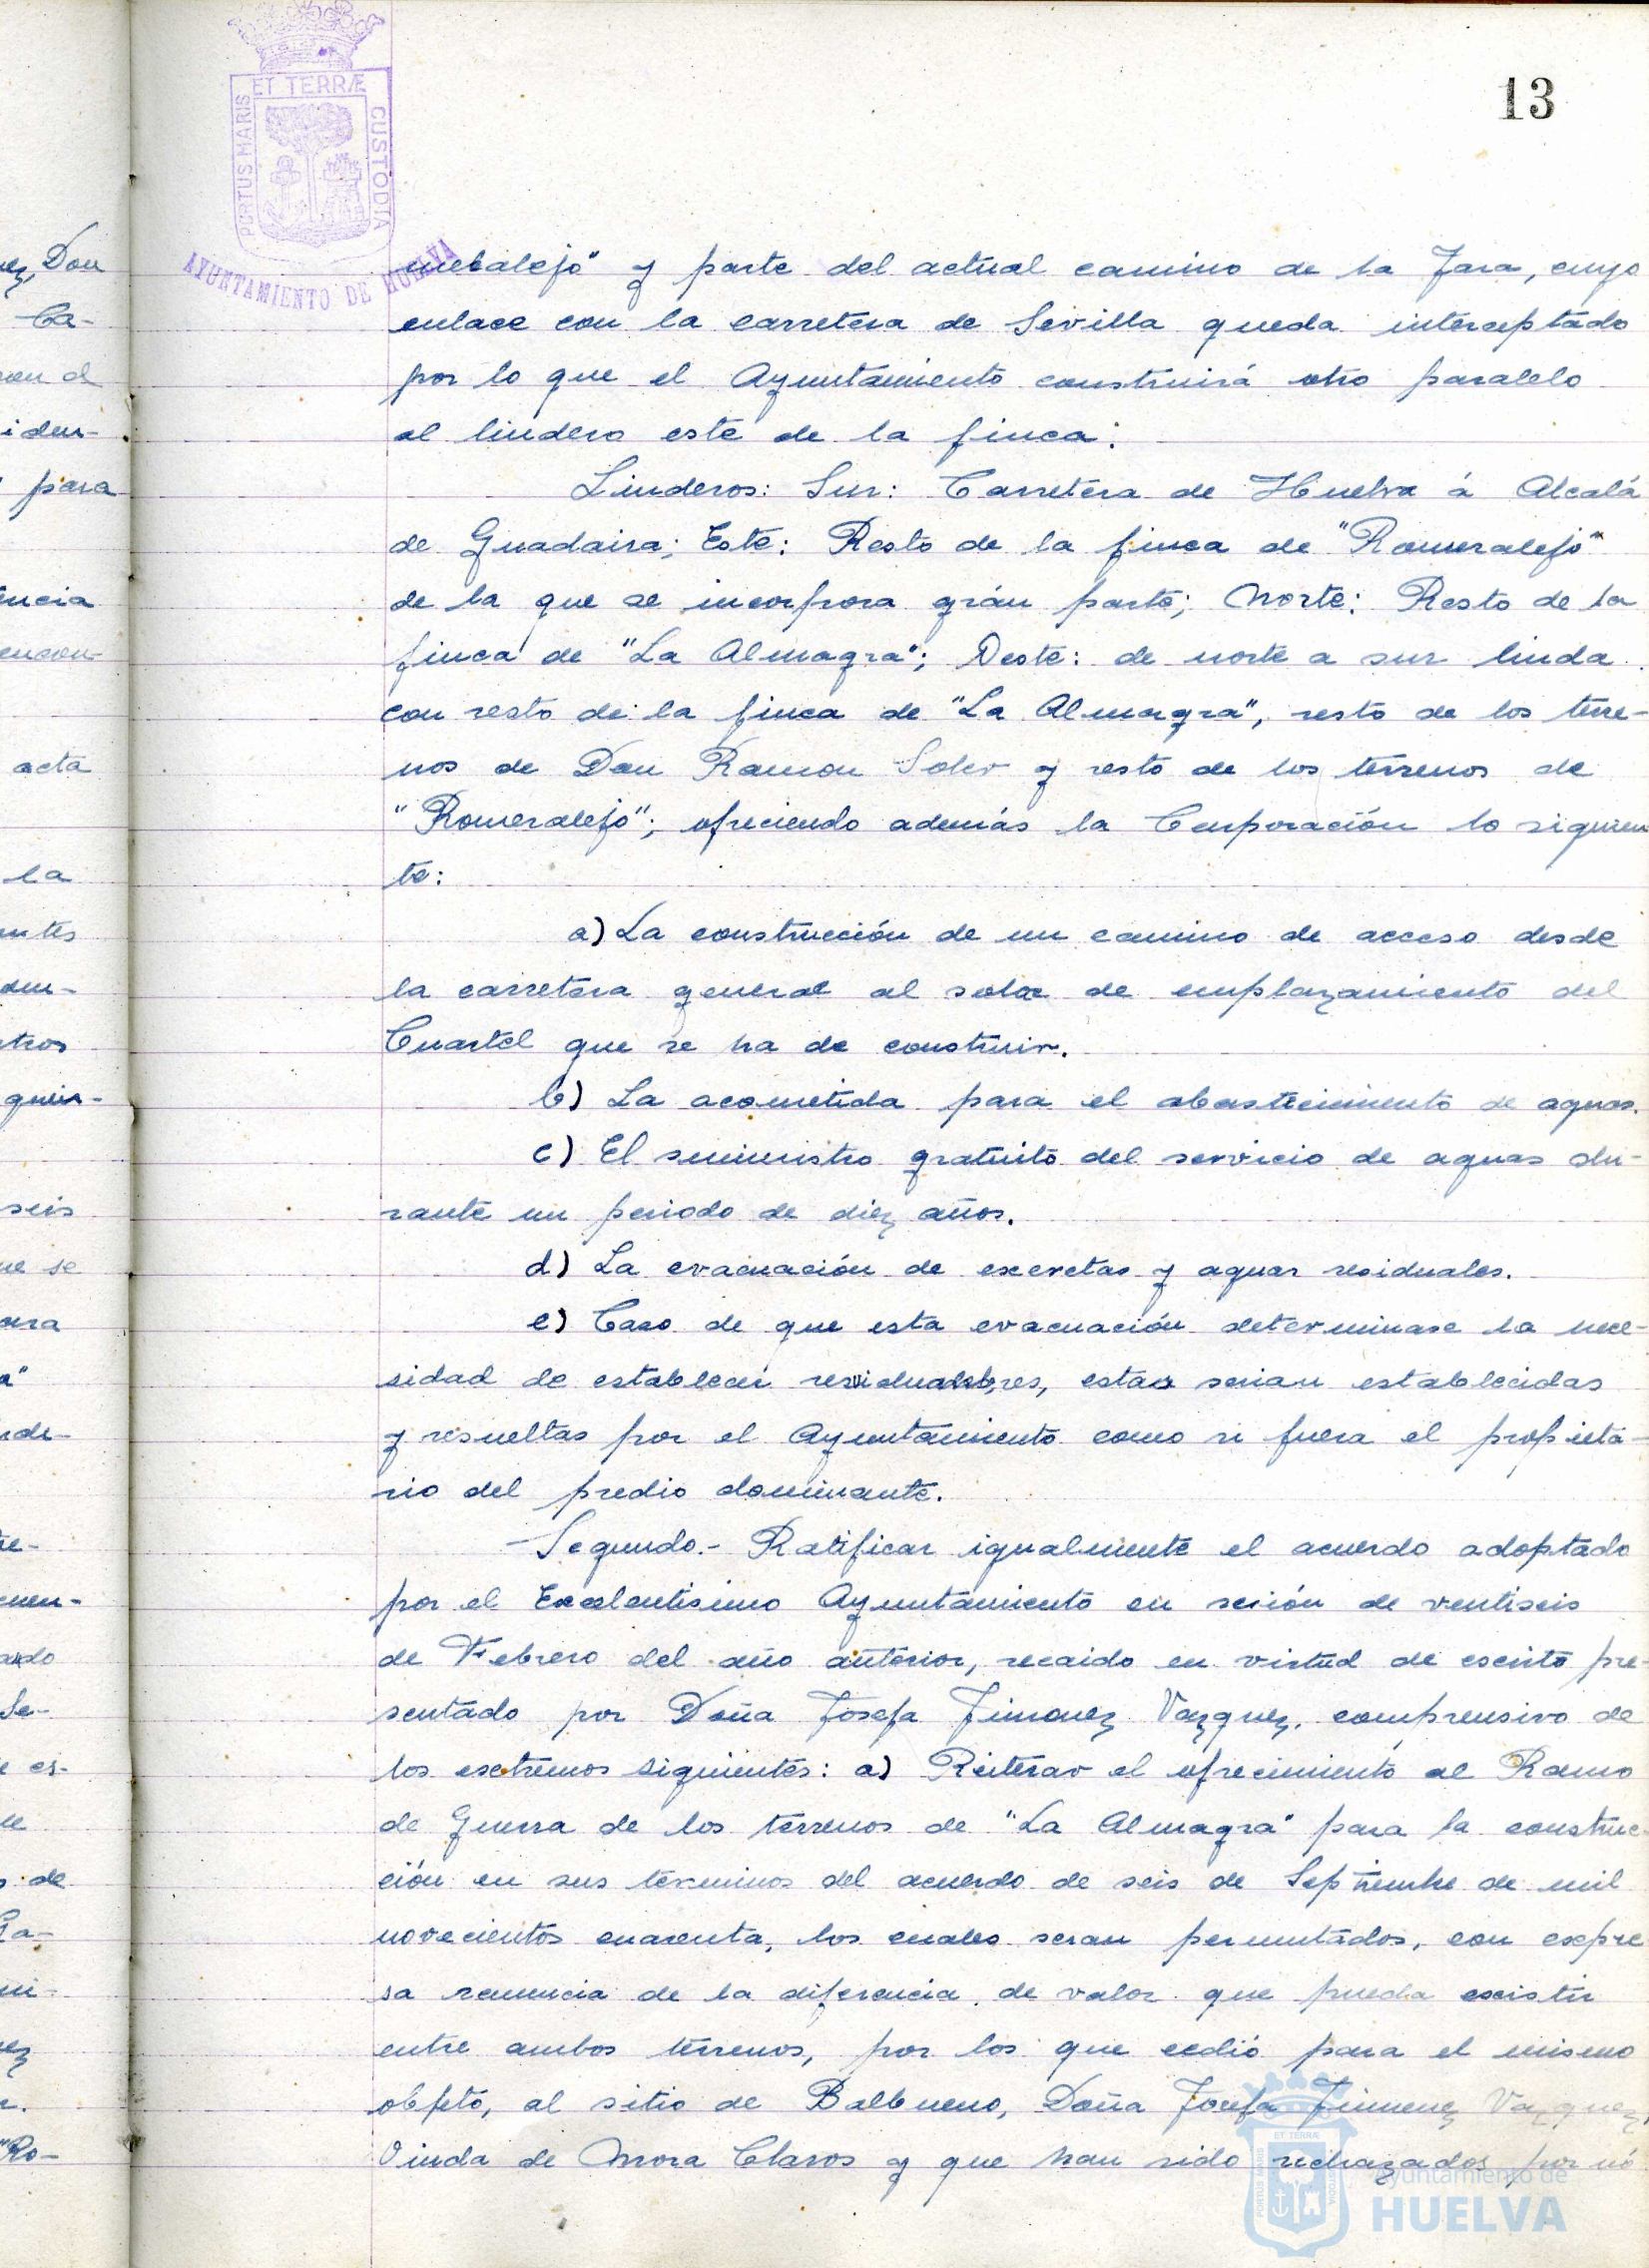 13
PORTUS MARIS ET TERRÆ CUSTODIA
AYUNTAMIENTO DE HUELVA
ez, Don
Ca-
con el
iden-
para
encia
encon-
acta
la
ntes
den-
tros
quin-
seis
ue se
ara
a"
rde-
ado
Se-
e es-
s de
Ra-
mi-
ez
"Ro-
meralejo" y parte del actual camino de la Jara, cuyo
enlace con la carretera de Sevilla queda interceptado
por lo que el Ayuntamiento construirá otro paralelo
al lindero este de la finca:
Linderos: Sur: Carretera de Huelva á Alcalá
de Guadaira; Este: Resto de la finca de "Romeralejo"
de la que se incorpora grán parte; Norte: Resto de la
finca de "La Almagra"; Oeste: de norte a sur linda
con resto de la finca de "La Almagra", resto de los terre-
nos de Don Ramon Soler y resto de los terrenos de
"Romeralejo"; ofreciendo además la Corporación lo siguien
te:
a) La construcción de un camino de acceso desde
la carretera general al solar de emplazamiento del
Cuartel que se ha de construir.
b) La acometida para el abastecimiento de aguas.
c) El suministro gratuito del servicio de aguas du-
rante un periodo de diez años.
d) La evacuación de excretas y aguas residuales.
e) Caso de que esta evacuación determinase la nece-
sidad de establecer estas serian establecidas
y resueltas por el Ayuntamiento como si fuera el propieta-
rio del predio dominante.
-Segundo.- Ratificar igualmente el acuerdo adoptado
por el Excelentisimo Ayuntamiento en sesión de ventiseis
de Febrero del año anterior, recaido en virtud de escrito pre-
sentado por Doña Josefa Jimenez Vazquez, comprensivo de
los extremos siguientes: a) Reiterar el ofrecimiento al Ramo
de Guerra de los terrenos de "La Almagra" para la construc-
ción en sus terminos del acuerdo de seis de Septiembre de mil
novecientos cuarenta, los cuales seran permutados, con expre
sa renuncia de la diferencia de valor que pueda existir
entre ambos terrenos, por los que cedió para el mismo
objeto, al sitio de Balbueno, Doña Josefa Jimenez Vazquez,
Viuda de Mora Claros y que han sido rechazados por nó
Ayuntamiento de
HUELVA